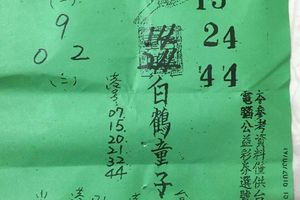 (二)
9
0 2
(三)
15
24
44
白鶴童子
07
15
20
21
32
44
本參考資料僅供台
電腦公益彩券選號